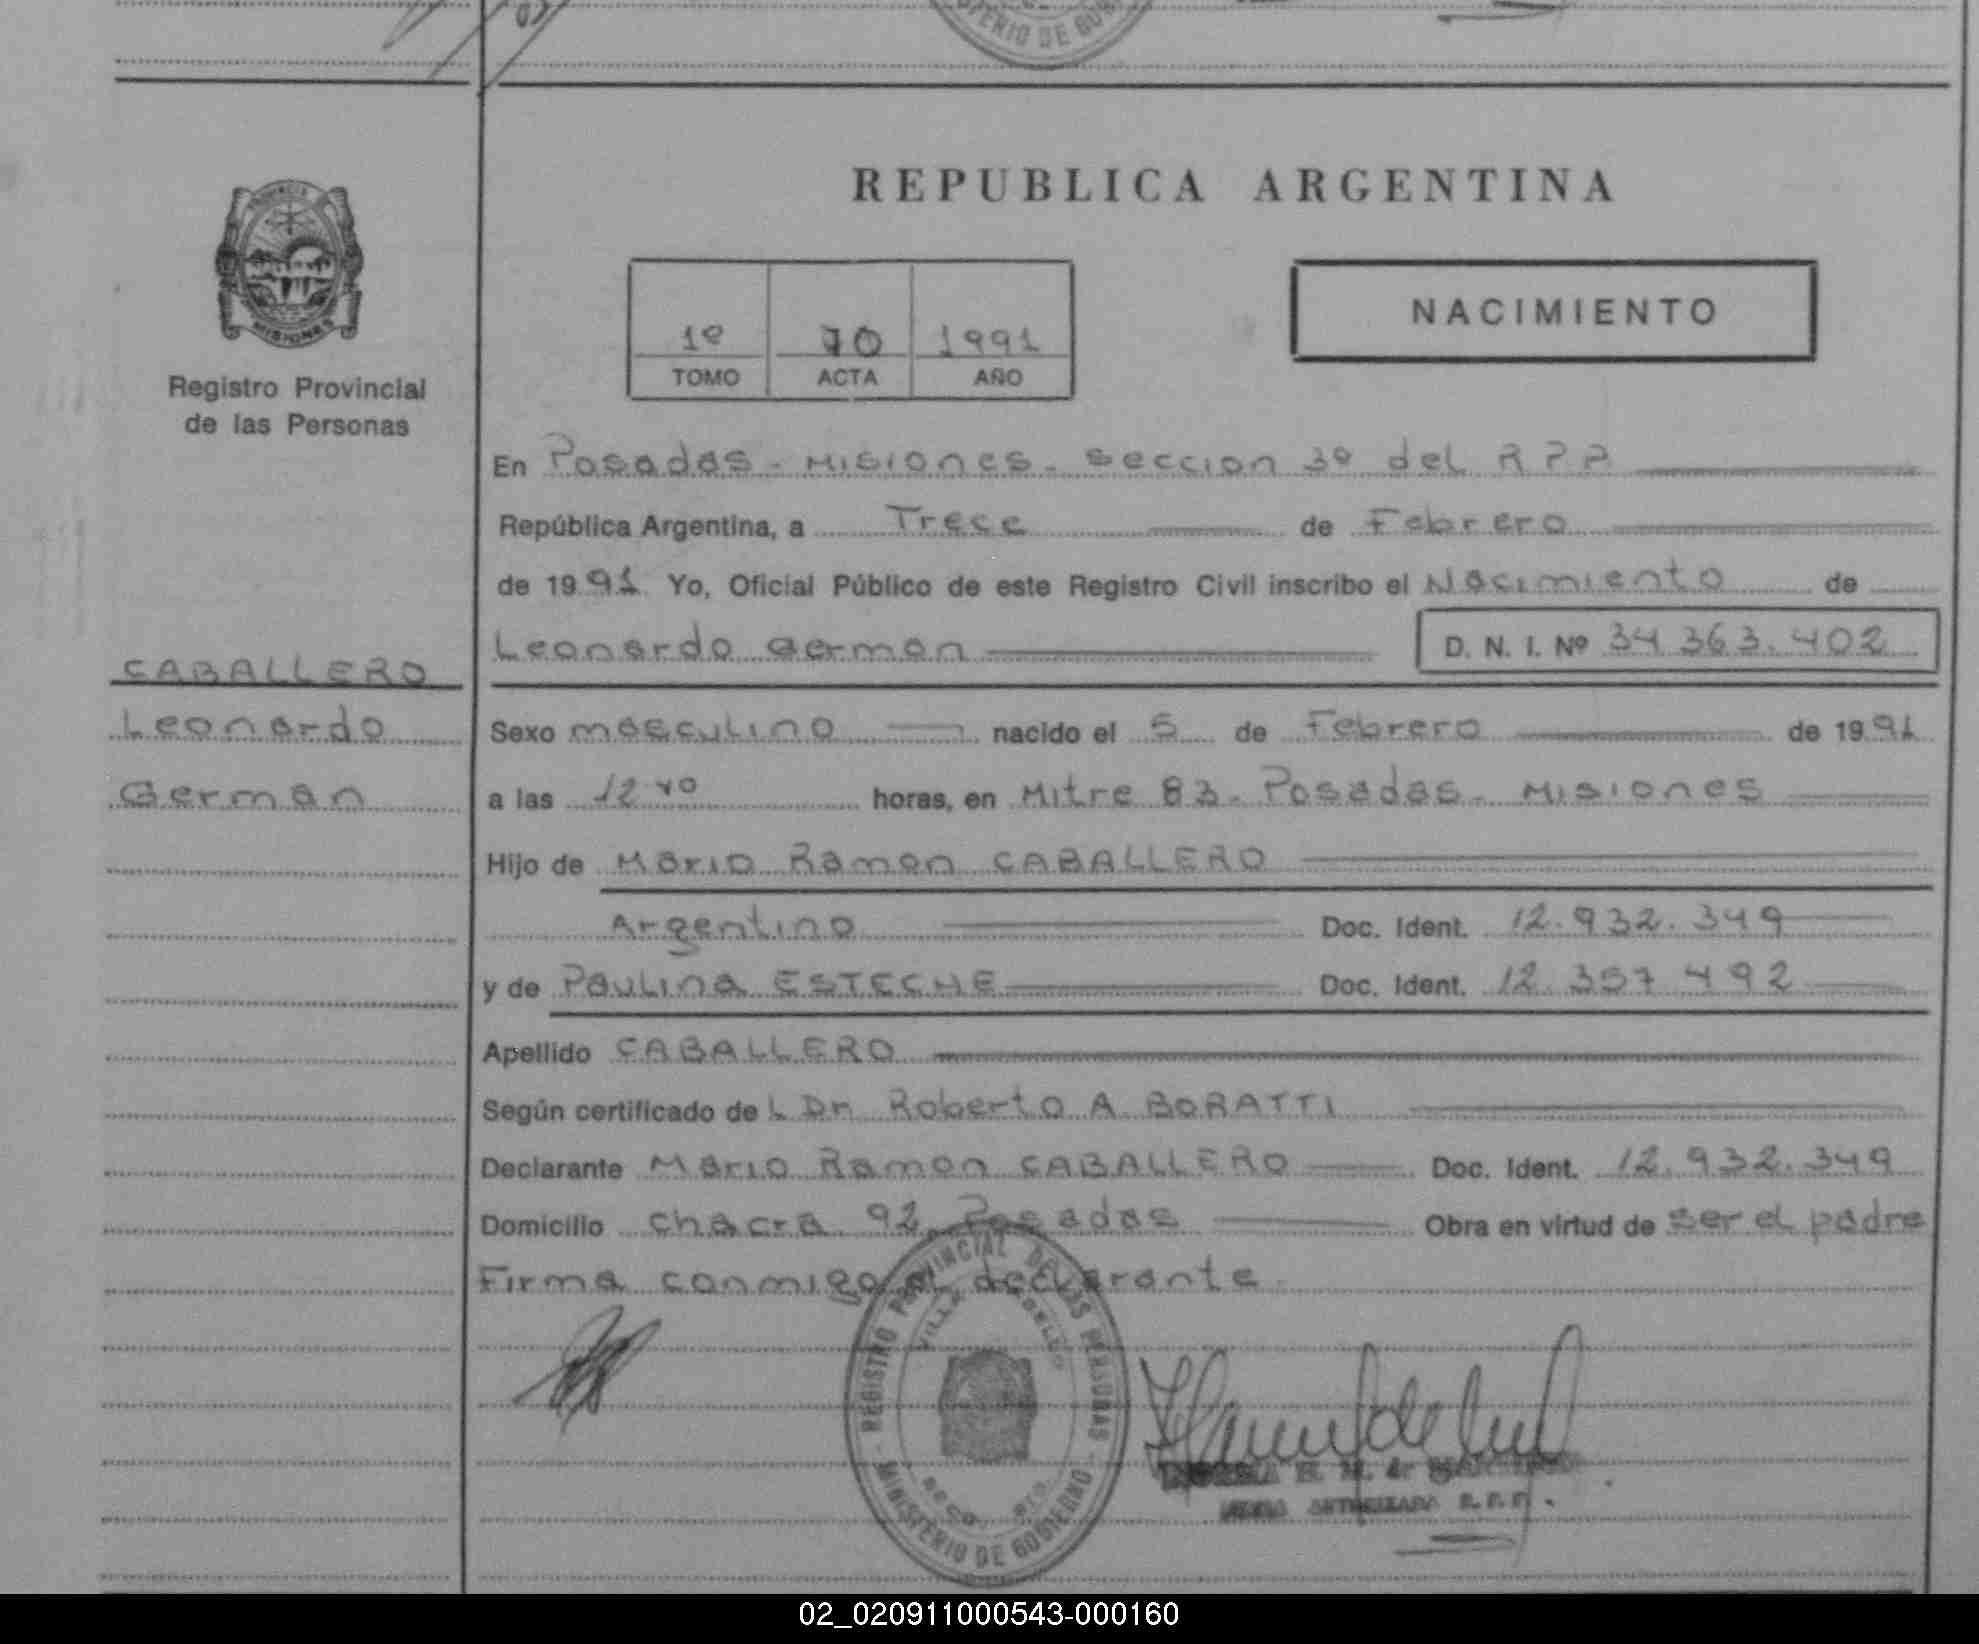 MINISTERIO DE GOBIERNO
PROVINCIA
MISIONES
Registro Provincial
de las Personas
REPUBLICA ARGENTINA
1º 70 1991
TOMO ACTA AÑO
NACIMIENTO
En Posadas - Misiones - Seccion 3º del R P P
República Argentina, a Trece de Febrero
de 1991 Yo, Oficial Público de este Registro Civil inscribo el Nacimiento de
Leonardo German D. N. I. Nº 34 363.402
CABALLERO
Leonardo
German
Sexo masculino nacido el 5 de Febrero de 1991
a las 12 horas, en Mitre 83 - Posadas - Misiones
Hijo de Mario Ramon CABALLERO
Argentino Doc. Ident. 12.932.349
y de Paulina ESTECHE Doc. Ident. 12.357 492
Apellido CABALLERO
Según certificado de L Dr. Roberto A BORATTI
Declarante Mario Ramon CABALLERO Doc. Ident. 12.932.349
Domicilio chacra 92 Posadas Obra en virtud de ser el padre
Firma conmigo el declarante
REGISTRO PROVINCIAL DE LAS PERSONAS
MINISTERIO DE GOBIERNO
VILLA
AUTORIZADA R.P.P.
02_020911000543-000160